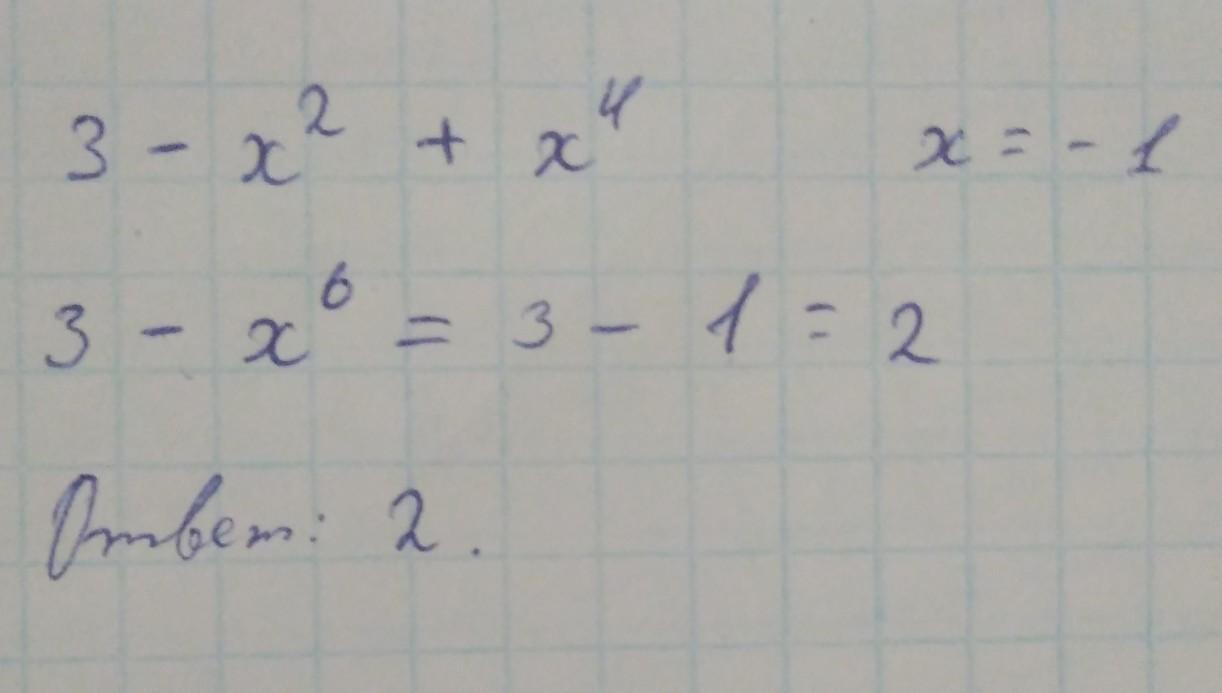 3 - x² + x⁴ x = - 1
3 - x⁶ = 3 - 1 = 2
Ответ: 2.